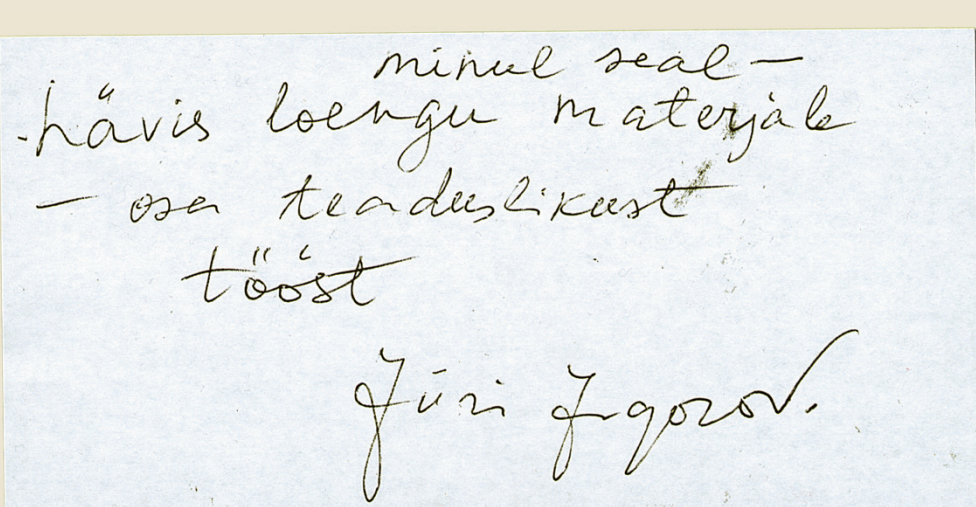 minul seal –
hävis loengu materjale
– osa teaduslikust
tööst
Jüri Jegorov.